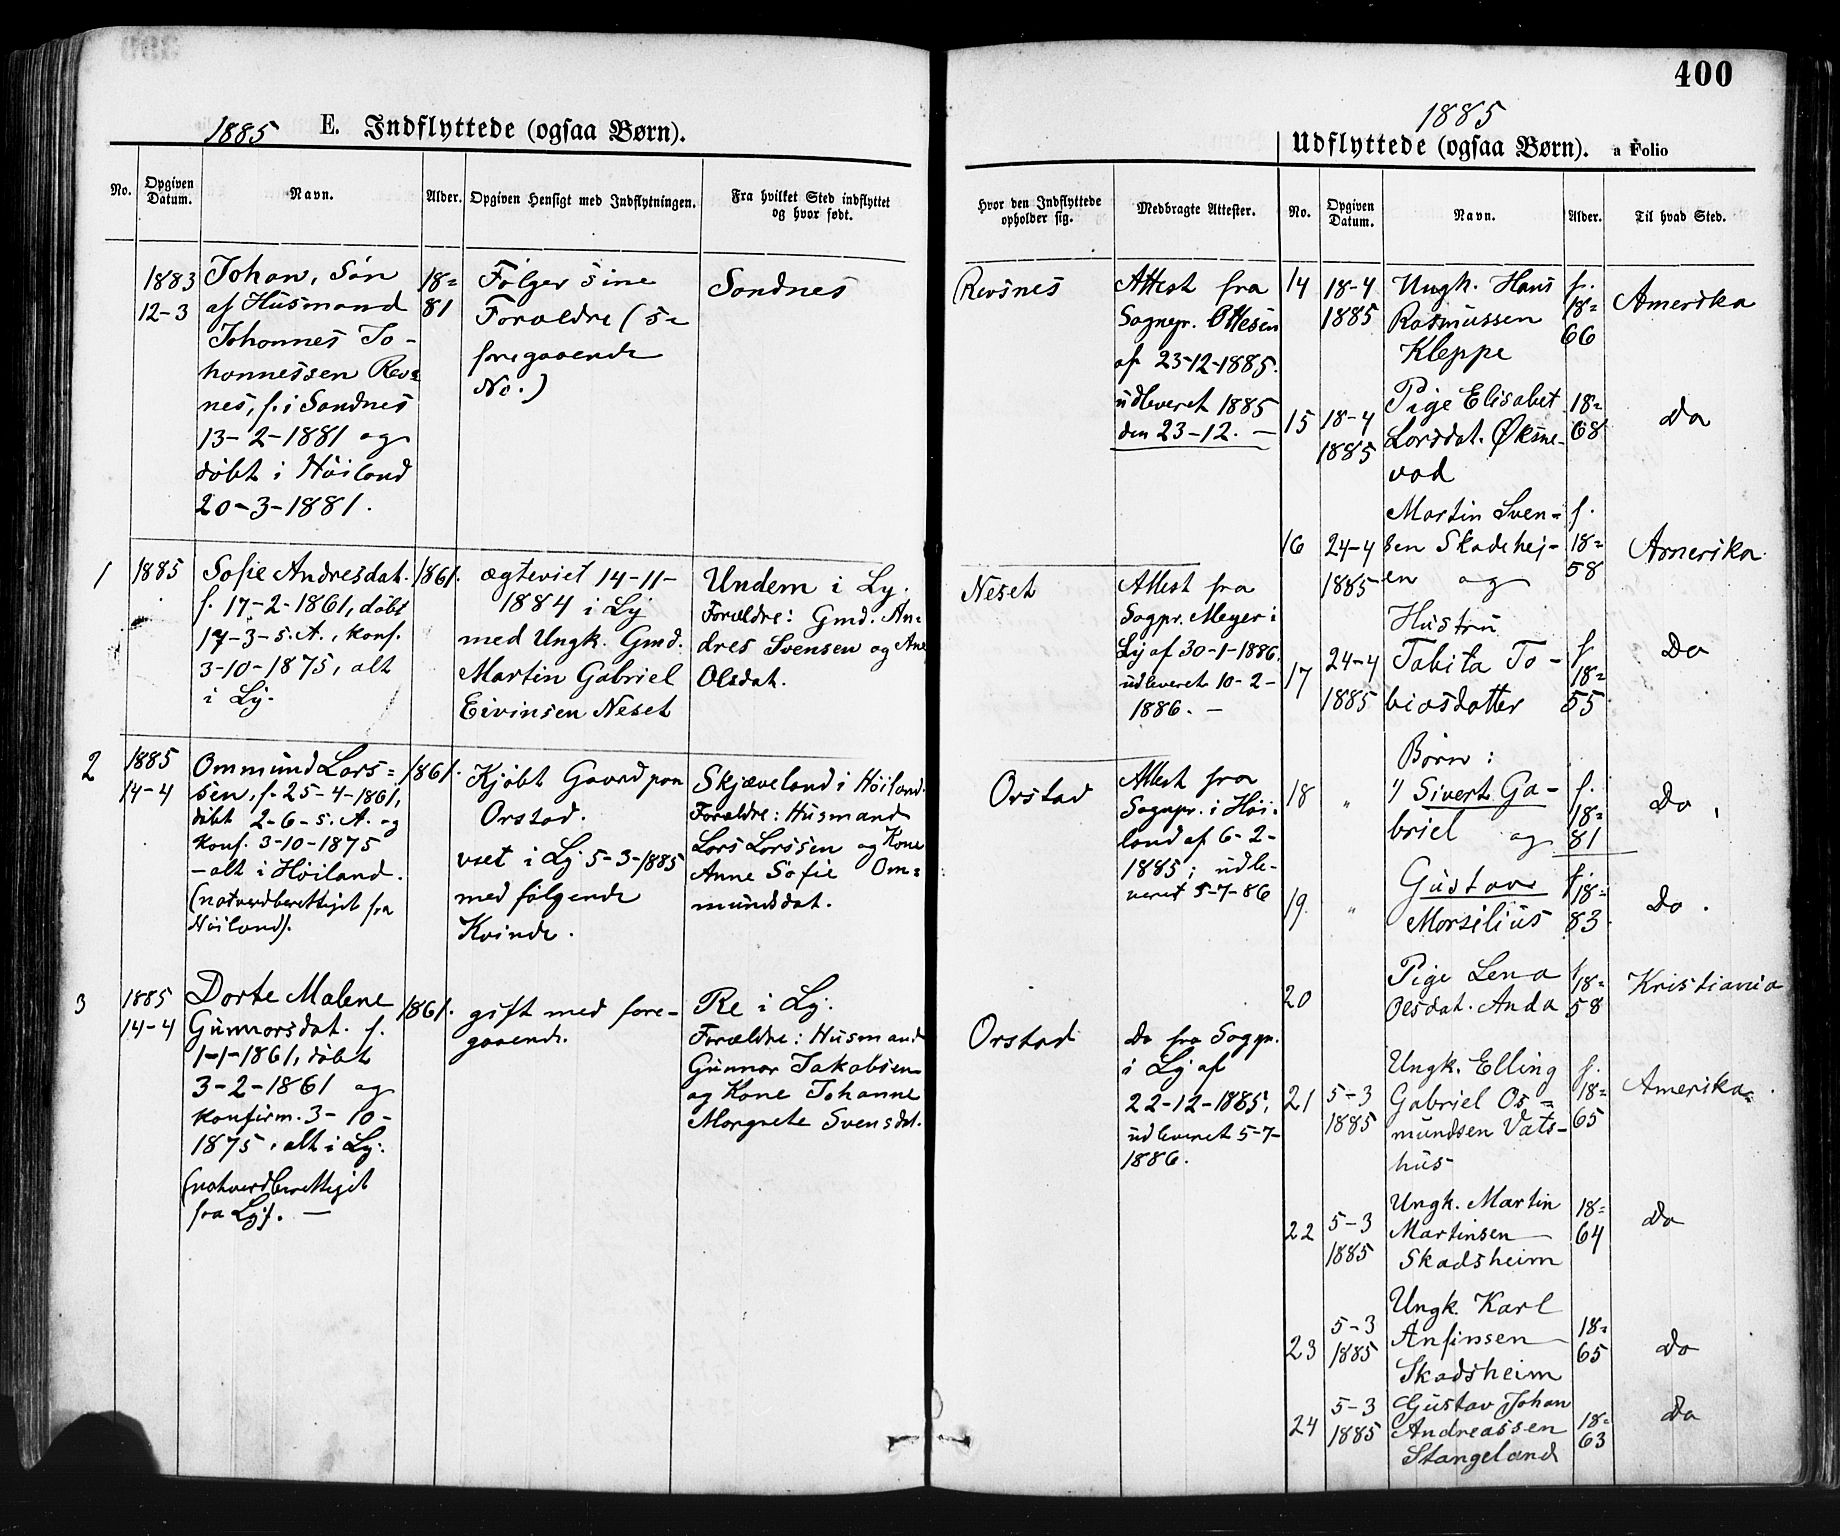 400
1885 E. Indflyttede (ogsaa Børn).
No.
Opgiven
Datum.
Navn.
Alder.
Opgiven Hensigt med Indflytningen.
Fra hvilket Sted indflyttet
og hvor født.
1883
12-3
Johan, Søn
af Husmand
Johannes Jo-
hannessen Revs=
nes, f. i Sandnes
13-2-1881 og
døbt i Höiland
20-3-1881.
18=
81
Følger sine
Forældre (s=
foregaaende
No.)
Sandnes
1
1885
Sofie Andresdat.
f. 17-2-1861, døbt
17-3-s.A., konf.
3-10-1875, alt
i Ly.
1861.
ægteviet 14-11-
1884 i Ly
med Ungk. Gmd.
Martin Gabriel
Eivinsen Neset
Undem i Ly.
Forældre: Gmd. An=
dres Svensen og Ane
Olsdat.
2
1885
14-4
Ommund Lars=
sen, f. 25-4-1861,
döbt 2-6-s.A. og
konf. 3-10-1875
-alt i Höiland.
(natverdberettiget fra
Höiland).
1861.
Kjöbt Gaard paa
Orstad.
viet i Ly 5-3-1885
med følgende
Kvinde.
Skjæveland i Höiland.
Forældre: Husmand
Lars Larssen og Kone
Anne Sofie Om=
mundsdat.
3
1885
14-4
Dorte Malene
Gunnarsdat. f.
1-1-1861, döbt
3-2-1861 og
konfirm. 3-10-
1875, alt i Ly.
(natverdberettiget
fra Ly). —
1861.
gift med fore-
gaaende.
Re i Ly.
Forældre: Husmand
Gunnar Jakobsen
og Kone Johanne
Margrete Svensdat.
1885
Udflyttede (ogsaa Børn). a Folio
Hvor den Indflyttede
opholder sig.
Medbragte Attester.
No.
Opgiven
Datum.
Navn.
Alder.
Til hvad Sted.
Revsnes
Attest fra
Sognepr. Ottesen
af 23-12-1885.
udleveret 1885
den 23-12. —
Neset
Attest fra
Sogpr. Meyer i
Ly af 30-1-1886,
udleveret 10-2-
1886. —
Orstad
Attest fra
Sognpr. i Höi-
land af 6-2-
1885; udle-
veret 5-7-86
Orstad
Do fra Sogpr.
i Ly af
22-12-1885,
udleveret 5-7-
1886.
14
18-4
1885
Ungk. Hans
Rasmussen
Kleppe
f.
18=
66
Amerika
15
18-4
1885
Pige Elisabet
Larsdat. Øksne-
vad
18=
68
Do
16
24-4
1885
Martin Sven=
sen Skadshej-
en og
f.
18=
58
Amerika.
17
24-4
1885
Hustru
Tabita To-
biasdatter
f
18=
55
Do
Børn:
18
"
1) Sivert Ga-
briel og
f.
18=
81
Do,
19.
"
Gustav
Marsilius
f.
18=
83.
Do.
20
Pige Lena
Olsdat. Anda
f
18=
58
Kristiania
21
5-3
1885
Ungk. Elling
Gabriel Os=
mundsen Vats-
hus
f.
18=
65
Amerika
22
5-3
1885
Ungk. Martin
Martinsen
Skadsheim
18=
64
Do
23
5-3
1885
Ungk. Karl
Anfinsen
Skadsheim
18=
65
Do
24
5-3
1885
Gustav Johan
Andreassen
Stangeland
18=
63
Do